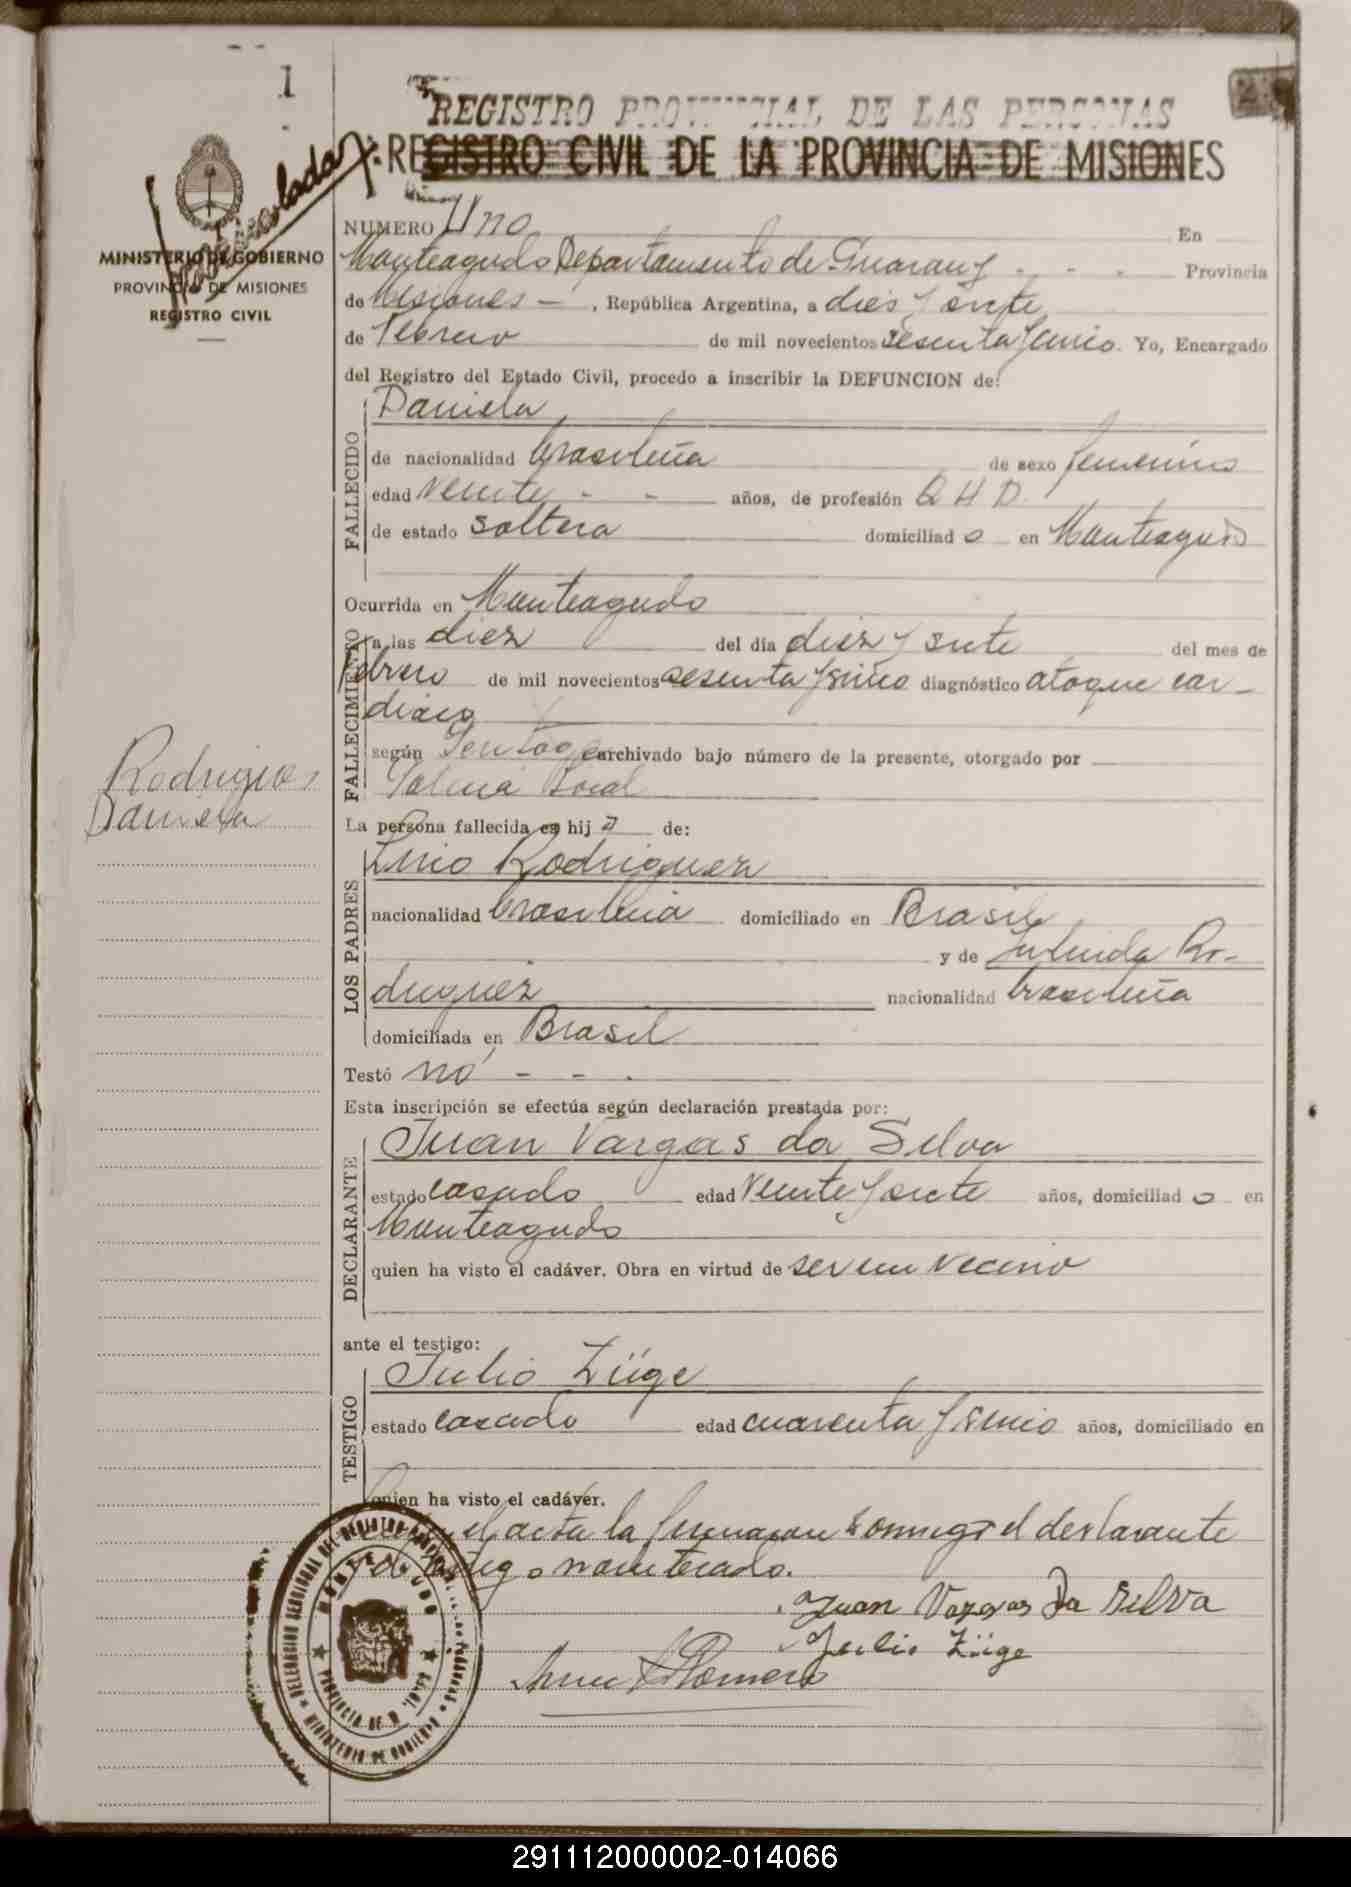 1
REGISTRO PROVINCIAL DE LAS PERSONAS
REGISTRO CIVIL DE LA PROVINCIA DE MISIONES
MINISTERIO DE GOBIERNO
PROVINCIA DE MISIONES
REGISTRO CIVIL
NUMERO Uno En
Monteagudo Departamento de Guarany - - - Provincia
de Misiones - , República Argentina, a dies y siete
de Febrero de mil novecientos sesenta y cinco. Yo, Encargado
del Registro del Estado Civil, procedo a inscribir la DEFUNCION de:
FALLECIDO
Daniela
de nacionalidad brasileña de sexo femenino
edad veinte - - años, de profesión Q H D.
de estado soltera domiciliad o en Monteagudo
Ocurrida en Monteagudo
FALLECIMIENTO
a las diez del día diez y siete del mes de
febrero de mil novecientos sesenta y cinco diagnóstico ataque car-
diaco
según archivado bajo número de la presente, otorgado por
Rodrigues
Daniela
La persona fallecida es hij a de:
LOS PADRES
Lino Rodriguez
nacionalidad brasileña domiciliado en Brasil
y de Ro-
driguez nacionalidad brasileña
domiciliada en Brasil
Testó no - - .
Esta inscripción se efectúa según declaración prestada por:
DECLARANTE
Juan Vargas da Silva
estado casado edad veinte y siete años, domiciliad o en
Monteagudo
quien ha visto el cadáver. Obra en virtud de ser un vecino
ante el testigo:
TESTIGO
Julio Züge
estado casado edad cuarenta y cinco años, domiciliado en
quien ha visto el cadáver.
el acta la firmaron conmigo el declarante
y el testigo nombrado.
Juan Vargas Da Silva
Julio Züge
Romero
MONTEAGUDO
MINISTERIO DE GOBIERNO
291112000002-014066